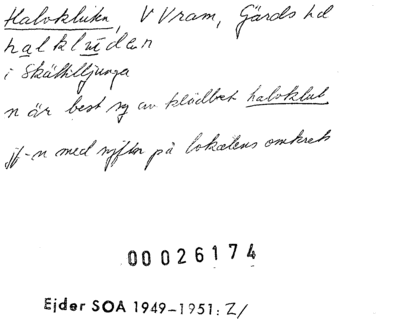 Halvkluten, V Vram, Gärds hd
halklúdan
i Skättilljunga
n är best sg av klädbet halvklut
jf-n med syftn på lokalens omkrets
00026174
Ejder SOA 1949-1951: 2/